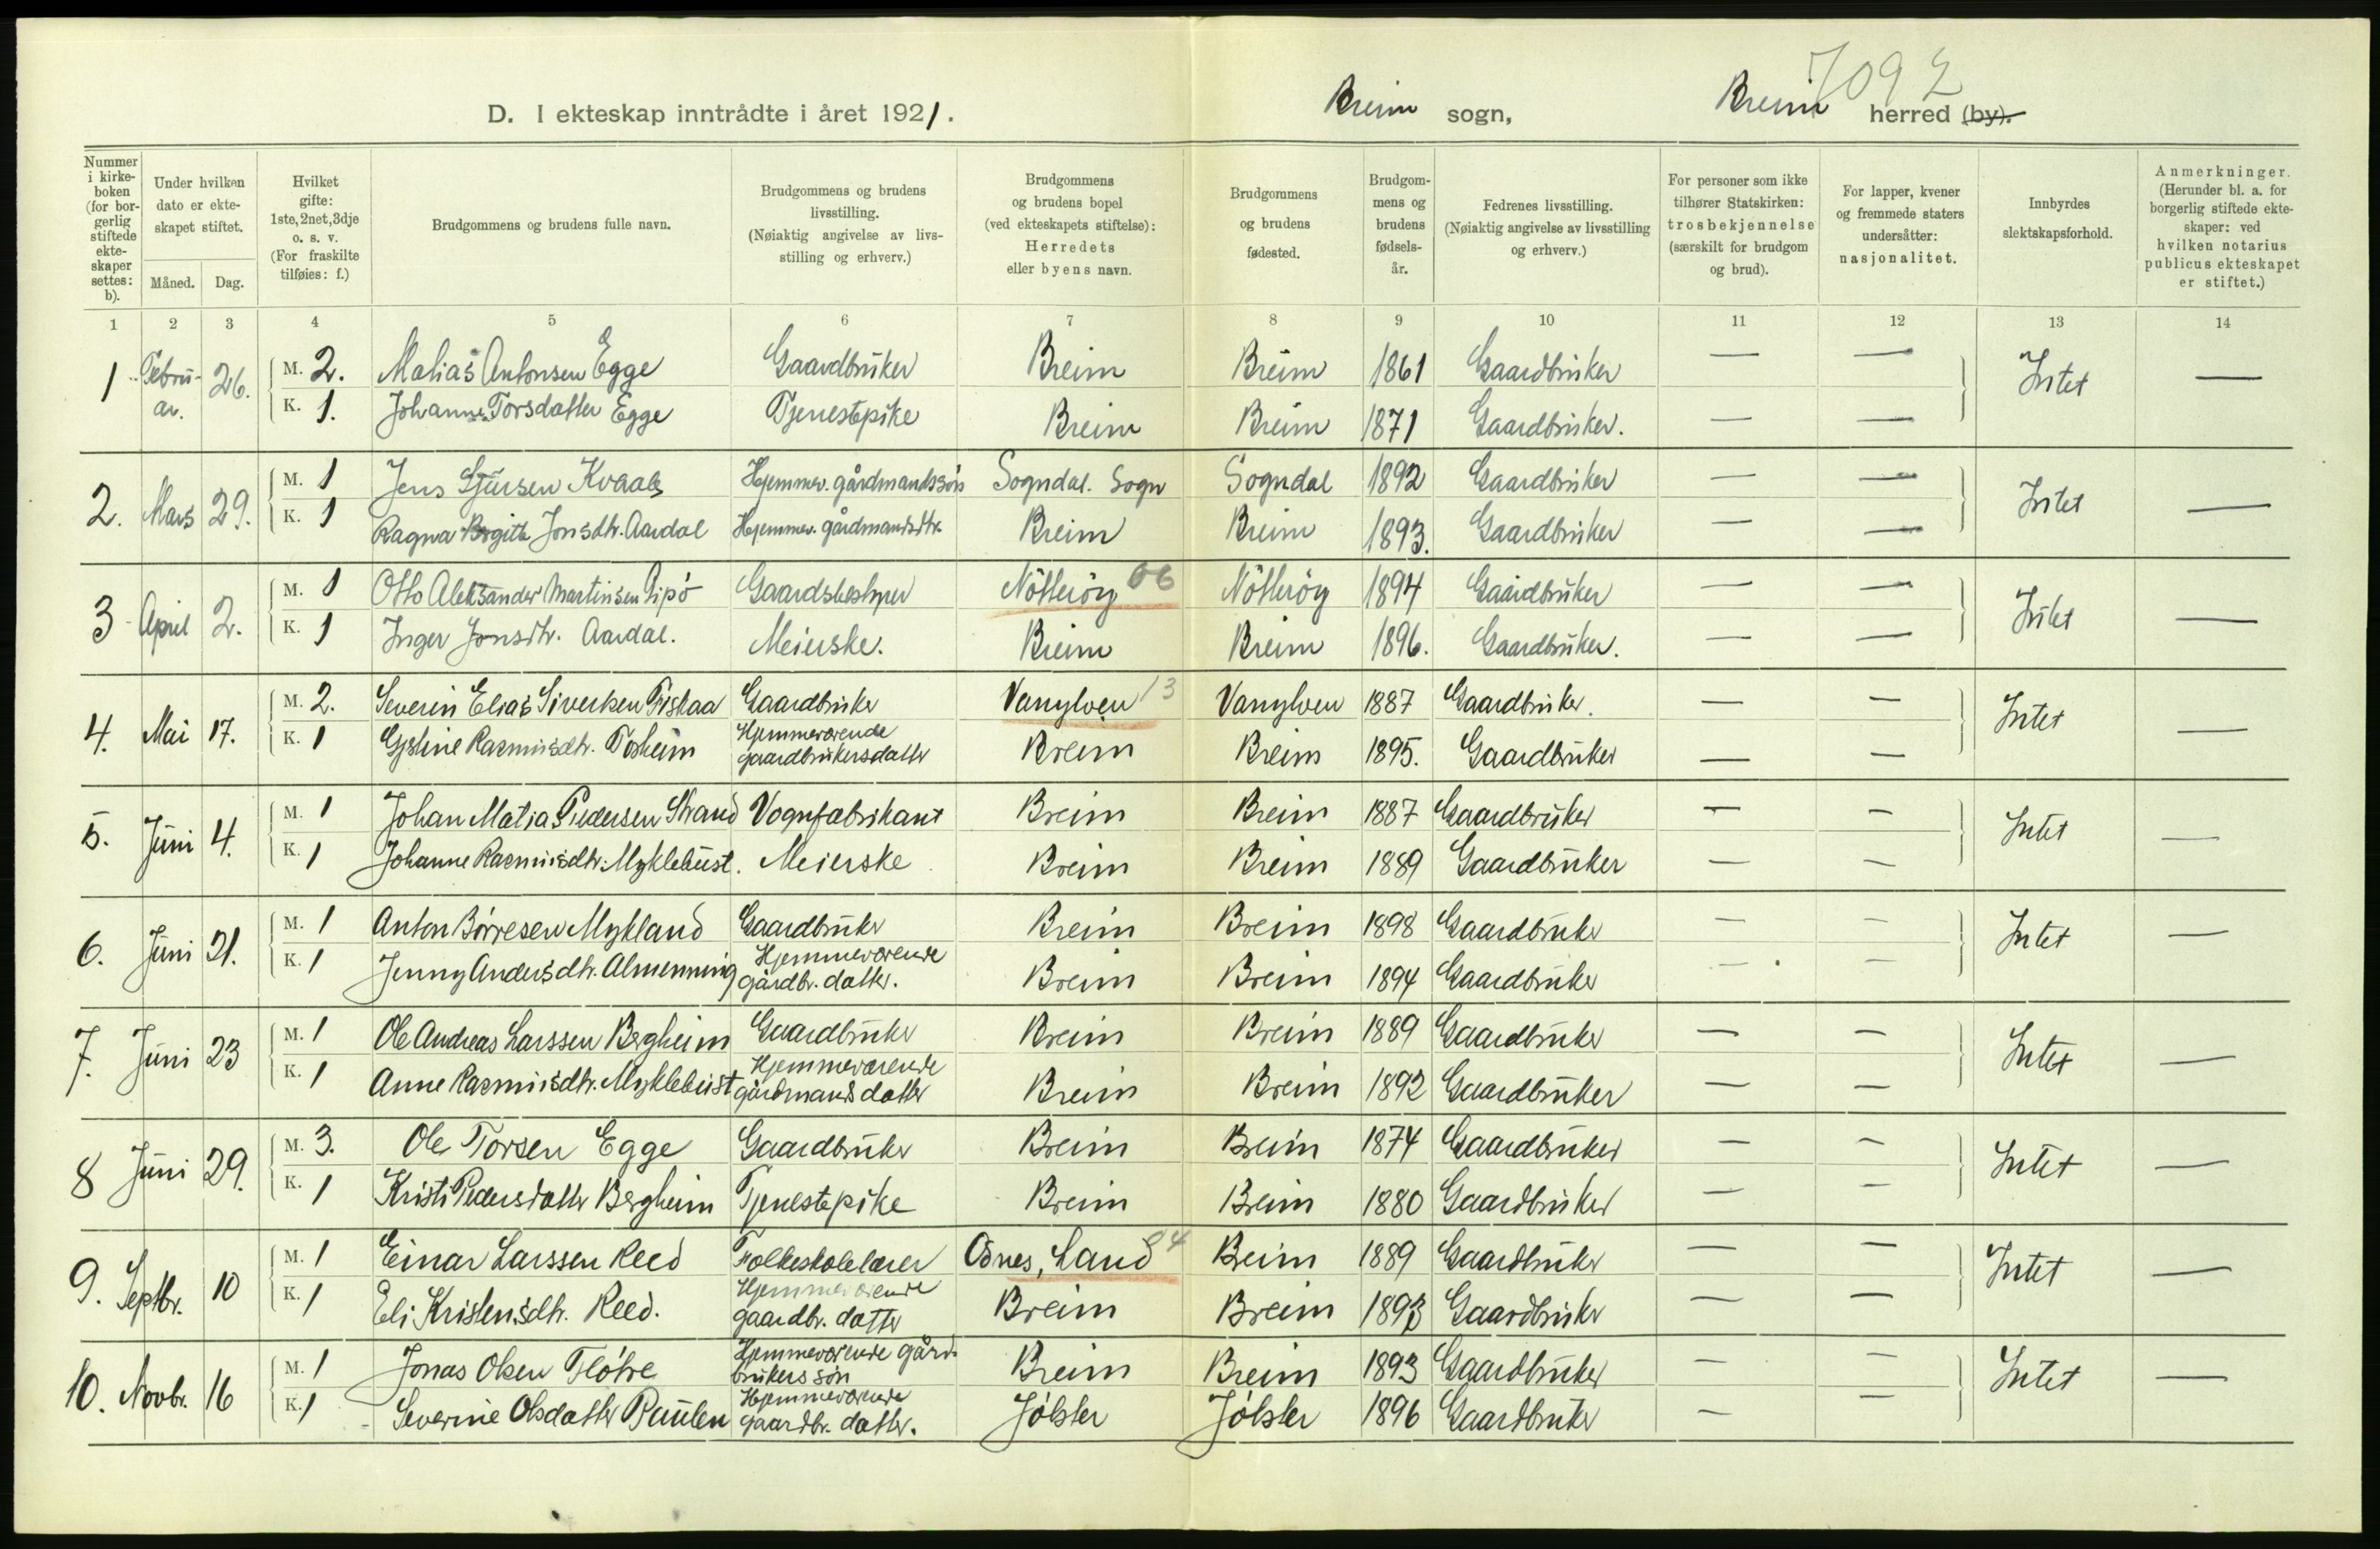 7092
D. I ekteskap inntrådte i året 1921. Breim sogn, Breim herred (by).
Nummer i kirkeboken (for borgerlig stiftede ekteskaper settes: b).
Under hvilken dato er ekteskapet stiftet. Måned. Dag.
Hvilket gifte: 1ste, 2net, 3dje o. s. v. (For fraskilte tilføies: f.)
Brudgommens og brudens fulle navn.
Brudgommens og brudens livsstilling. (Nøiaktig angivelse av livsstilling og erhverv.)
Brudgommens og brudens bopel (ved ekteskapets stiftelse): Herredets eller byens navn.
Brudgommens og brudens fødested.
Brudgommens og brudens fødselsår.
Fedrenes livsstilling. (Nøiaktig angivelse av livsstilling og erhverv.)
For personer som ikke tilhører Statskirken: trosbekjennelse (særskilt for brudgom og brud).
For lapper, kvener og fremmede staters undersåtter: nasjonalitet.
Innbyrdes slektskapsforhold.
Anmerkninger. (Herunder bl. a. for borgerlig stiftede ekteskaper: ved hvilken notarius publicus ekteskapet er stiftet.)
1 2 3 4 5 6 7 8 9 10 11 12 13 14
1 Februar. 26. M. 2. Matias Antonsen Egge Gaardbruker Breim Breim 1861 Gaardbruker — — Intet —
K. 1. Johanne Torsdatter Egge Tjenestepike Breim Breim 1871 Gaardbruker. — —
2. Mars 29. M. 1 Jens Sjursen Kvaale Hjemmev. gårdmandssøn Sogndal. Sogn Sogndal 1892 Gaardbruker — — Intet —
K. 1 Ragna Birgitte Jonsdtr. Aardal Hjemmev. gårdmandsdtr. Breim Breim 1893. Gaardbruker — —
3 April 2. M. 1 Otto Aleksander Martinsen Gipö Gaardsbestyrer Nötteröy 06 Nötteröy 1894 Gaardbruker — — Intet —
K. 1 Inger Jonsdtr. Aardal. Meierske. Breim Breim 1896. Gaardbruker. — —
4. Mai 17. M. 2. Severin Elias Sivertsen Fiskaa Gaardbruker Vanylven 13 Vanylven 1887 Gaardbruker. — — Intet —
K. 1 Gjstine Rasmusdtr. Fosheim Hjemmeværende gaardbrukersdatter Breim Breim 1895. Gaardbruker — —
5. Juni 4. M. 1 Johan Matias Pedersen Strand Vognfabrikant Breim Breim 1887 Gaardbruker — — Intet —
K. 1 Johanne Rasmusdtr. Myklebust. Meierske Breim Breim 1889 Gaardbruker — —
6. Juni 21. M. 1 Anton Börresen Mykland Gaardbruker Breim Breim 1898 Gaardbruker — — Intet —
K. 1 Jenny Andersdtr. Almenning Hjemmeværende gårdbr. datter. Breim Breim 1894 Gaardbruker — —
7. Juni 23 M. 1 Ole Andreas Larssen Bergheim Gaardbruker Breim Breim 1889 Gaardbruker — — Intet —
K. 1 Anne Rasmusdtr. Myklebust Hjemmeværende gårdmandsdatter Breim Breim 1892 Gaardbruker — —
8 Juni 29. M. 3. Ole Torsen Egge Gaardbruker Breim Breim 1874 Gaardbruker — — Intet —
K. 1 Kristi Pedersdatter Bergheim Tjenestepike Breim Breim 1880 Gaardbruker — —
9. Septbr. 10 M. 1 Einar Larssen Reed Folkeskolelærer Odnes, Land Breim 1889 Gaardbruker — — Intet —
K. 1 Eli Kristensdtr. Reed. Hjemmeværende gaardbr. datter Breim Breim 1893 Gaardbruker — —
10. Novbr. 16 M. 1 Jonas Olsen Flötre Hjemmeværende gårdbrukers søn Breim Breim 1893 Gaardbruker — — Intet —
K. 1 Severine Olsdatter Paulen Hjemmeværende gaardbr. datter. Jölster Jölster 1896 Gaardbruker — —